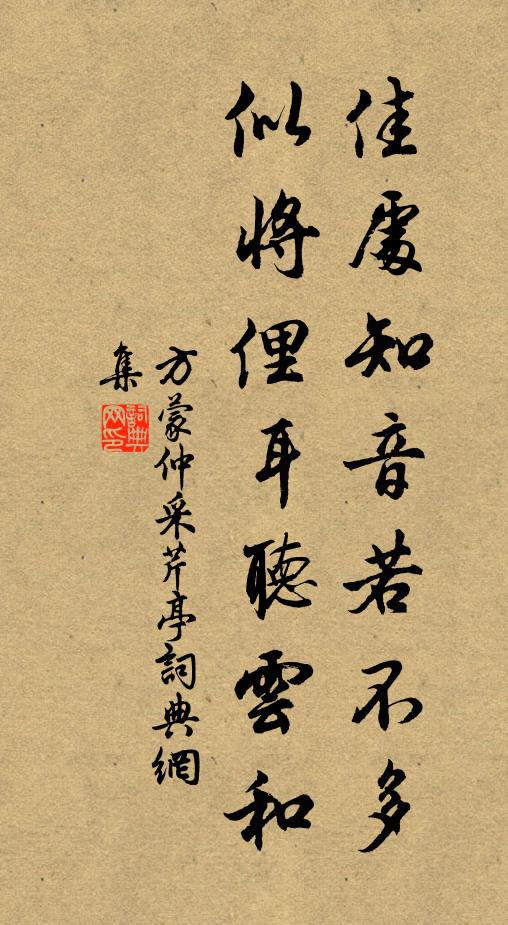 佳處知音若不多
似將俚耳聽雲和
方蒙仲采芹亭詞典網
集
詞典网印